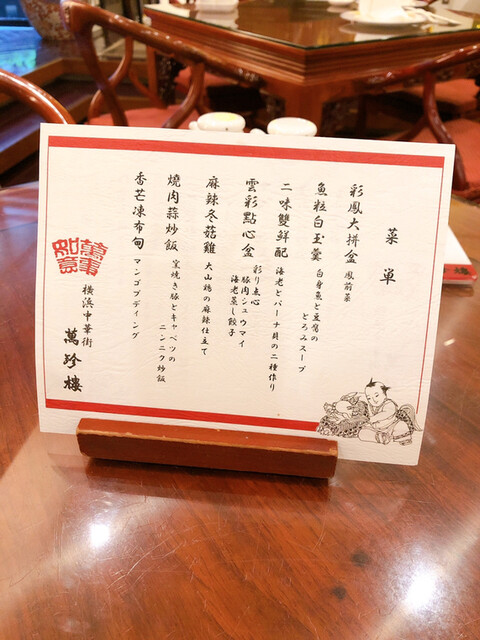 菜単
彩鳳大拼盆 鳳前菜
魚粒白玉羹 白身魚と豆腐の
とろみスープ
二味雙鮮配 海老とパーナ貝の二種作り
雲彩點心盆 彩り点心
豚肉シュウマイ
海老蒸し餃子
麻辣冬菇雞 大山鶏の麻辣仕立て
燒肉蒜炒飯 窯焼き豚とキャベツの
ニンニク炒飯
香芒凍布甸 マンゴプディング
萬事如意
横浜中華街 萬珍樓